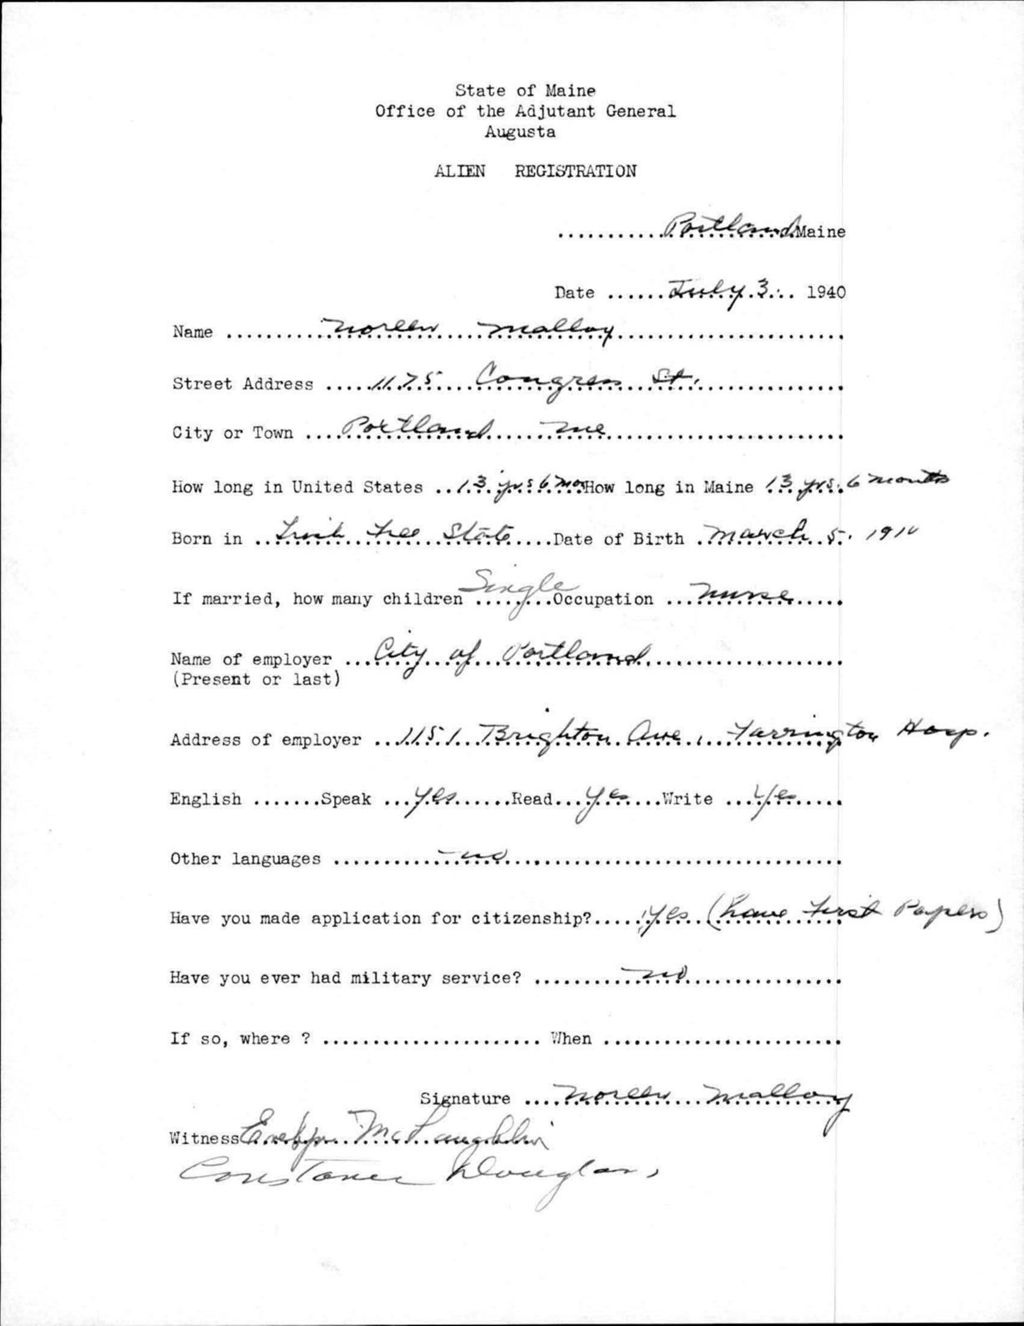 State of Maine
Office of the Adjutant General
Augusta
ALIEN REGISTRATION
...........Portland Maine
Date ......July 3... 1940
Name ..........Noreen Malloy......................
Street Address .....1175 Congress St...............
City or Town ....Portland Me........................
How long in United States ..13 yrs 6 mos How long in Maine 13 yrs. 6 months
Born in ..Irish Free State.....Date of Birth .March 5. 1910
If married, how many children Single Occupation ...Nurse.....
Name of employer ...City of Portland...................
(Present or last)
Address of employer ...1151 Brighton Ave, Farrington Hosp.
English .......Speak ...Yes......Read...Yes.....Write ...Yes.....
Other languages ..........no.................................
Have you made application for citizenship?.....Yes (have First Papers)
Have you ever had military service? ..........no................
If so, where ? ...................... When ........................
Signature ....Noreen Malloy
Witness Evelyn McLaughlin
Constance Douglass